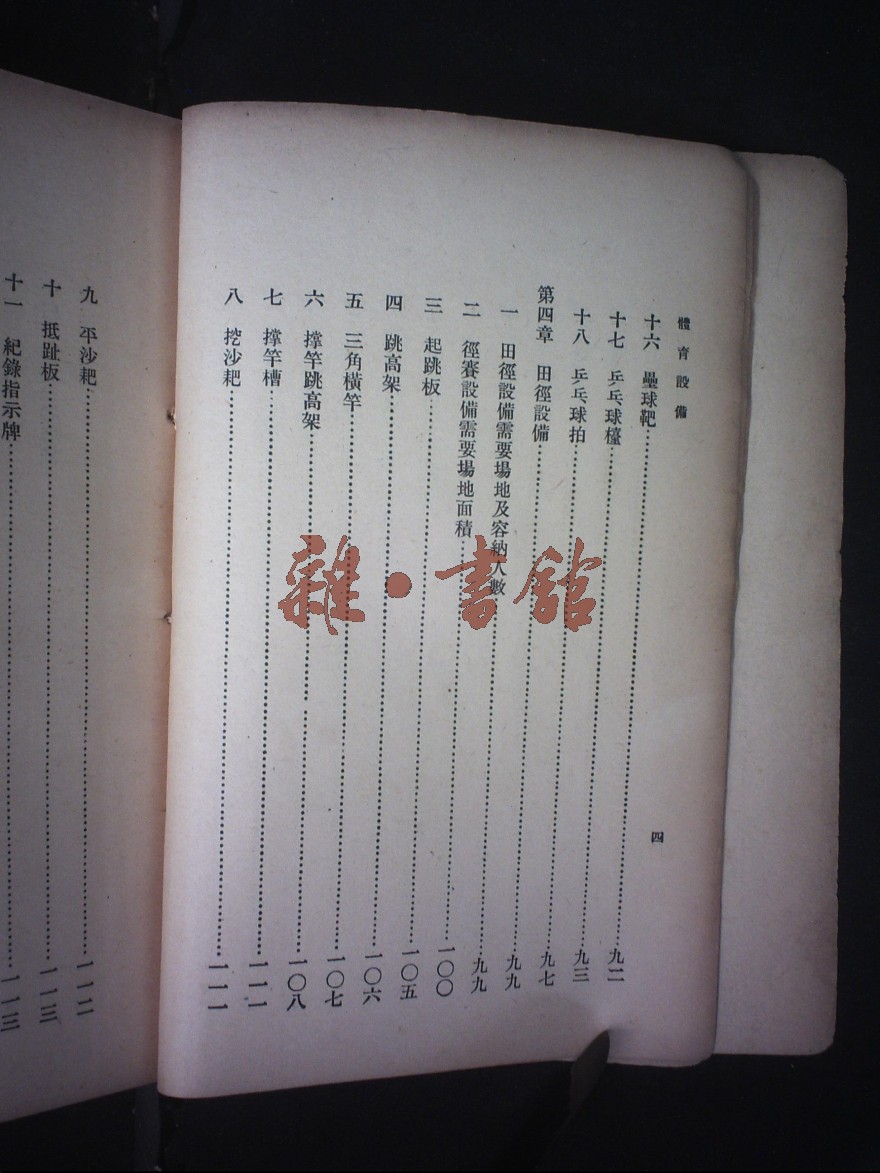 體育設備
十六 壘球靶……九二
十七 乒乓球檯……九三
十八 乒乓球拍……九七
第四章 田徑設備……九九
一 田徑設備需要場地及容納人數……九九
二 徑賽設備需要場地面積……一〇〇
三 起跳板……一〇五
四 跳高架……一〇六
五 三角橫竿……一〇七
六 撐竿跳高架……一〇八
七 撐竿槽……一一一
八 挖沙耙……一一一
四
九 平沙耙……一一二
十 抵趾板……一一三
十一 紀錄指示牌……一一三
雜·書館